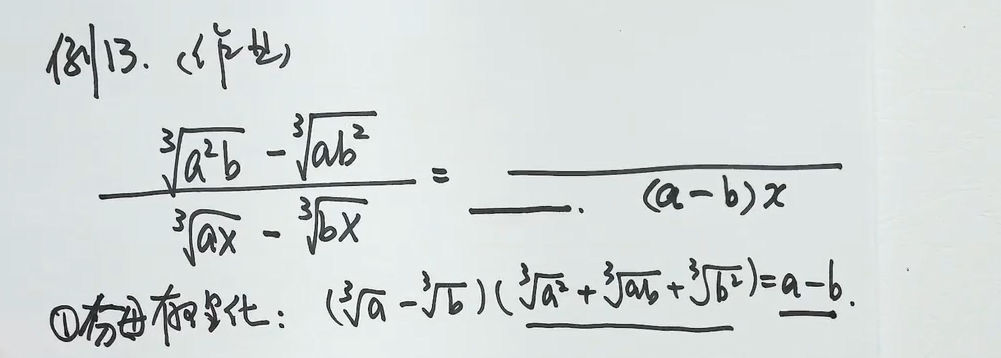 例13. (化简)
\frac{\sqrt[3]{a^2b} - \sqrt[3]{ab^2}}{\sqrt[3]{ax} - \sqrt[3]{bx}} = \_\_\_\_. \frac{}{(a-b)x}
①分母有理化: (\sqrt[3]{a} - \sqrt[3]{b})(\sqrt[3]{a^2} + \sqrt[3]{ab} + \sqrt[3]{b^2}) = a-b.